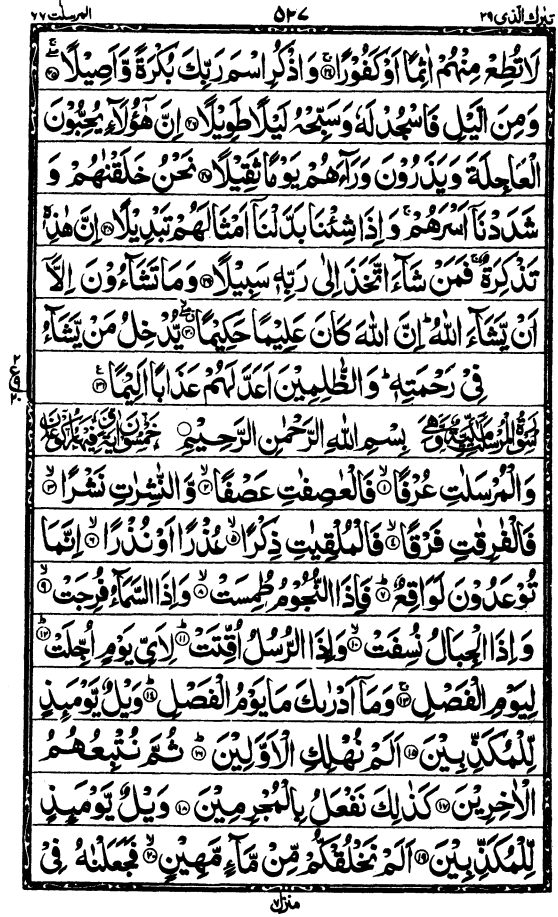 تبرك الذي ٢٩ ٥٢٧ المرسلت ٧٧
لَا تُطِعْ مِنْهُمْ اٰثِمًا اَوْ كَفُوْرًا ﴿٢٤﴾ وَاذْكُرِ اسْمَ رَبِّكَ بُكْرَةً وَّاَصِيْلًا ﴿٢٥﴾
وَمِنَ الَّيْلِ فَاسْجُدْ لَهٗ وَسَبِّحْهُ لَيْلًا طَوِيْلًا ﴿٢٦﴾ اِنَّ هٰٓؤُلَآءِ يُحِبُّوْنَ
الْعَاجِلَةَ وَيَذَرُوْنَ وَرَآءَهُمْ يَوْمًا ثَقِيْلًا ﴿٢٧﴾ نَحْنُ خَلَقْنٰهُمْ وَ
شَدَدْنَآ اَسْرَهُمْ ۚ وَاِذَا شِئْنَا بَدَّلْنَآ اَمْثَالَهُمْ تَبْدِيْلًا ﴿٢٨﴾ اِنَّ هٰذِهٖ
تَذْكِرَةٌ ۚ فَمَنْ شَآءَ اتَّخَذَ اِلٰى رَبِّهٖ سَبِيْلًا ﴿٢٩﴾ وَمَا تَشَآءُوْنَ اِلَّآ
اَنْ يَّشَآءَ اللّٰهُ ؕ اِنَّ اللّٰهَ كَانَ عَلِيْمًا حَكِيْمًا ﴿٣٠﴾ يُّدْخِلُ مَنْ يَّشَآءُ
فِيْ رَحْمَتِهٖ ؕ وَالظّٰلِمِيْنَ اَعَدَّ لَهُمْ عَذَابًا اَلِيْمًا ﴿٣١﴾
بِسْمِ اللّٰهِ الرَّحْمٰنِ الرَّحِيْمِ
وَالْمُرْسَلٰتِ عُرْفًا ﴿١﴾ فَالْعٰصِفٰتِ عَصْفًا ﴿٢﴾ وَّالنّٰشِرٰتِ نَشْرًا ﴿٣﴾
فَالْفٰرِقٰتِ فَرْقًا ﴿٤﴾ فَالْمُلْقِيٰتِ ذِكْرًا ﴿٥﴾ عُذْرًا اَوْ نُذْرًا ﴿٦﴾ اِنَّمَا
تُوْعَدُوْنَ لَوَاقِعٌ ﴿٧﴾ فَاِذَا النُّجُوْمُ طُمِسَتْ ﴿٨﴾ وَاِذَا السَّمَآءُ فُرِجَتْ ﴿٩﴾
وَاِذَا الْجِبَالُ نُسِفَتْ ﴿١٠﴾ وَاِذَا الرُّسُلُ اُقِّتَتْ ﴿١١﴾ لِاَيِّ يَوْمٍ اُجِّلَتْ ﴿١٢﴾
لِيَوْمِ الْفَصْلِ ﴿١٣﴾ وَمَآ اَدْرٰىكَ مَا يَوْمُ الْفَصْلِ ﴿١٤﴾ وَيْلٌ يَّوْمَئِذٍ
لِّلْمُكَذِّبِيْنَ ﴿١٥﴾ اَلَمْ نُهْلِكِ الْاَوَّلِيْنَ ﴿١٦﴾ ثُمَّ نُتْبِعُهُمُ
الْاٰخِرِيْنَ ﴿١٧﴾ كَذٰلِكَ نَفْعَلُ بِالْمُجْرِمِيْنَ ﴿١٨﴾ وَيْلٌ يَّوْمَئِذٍ
لِّلْمُكَذِّبِيْنَ ﴿١٩﴾ اَلَمْ نَخْلُقْكُّمْ مِّنْ مَّآءٍ مَّهِيْنٍ ﴿٢٠﴾ فَجَعَلْنٰهُ فِيْ
منزل